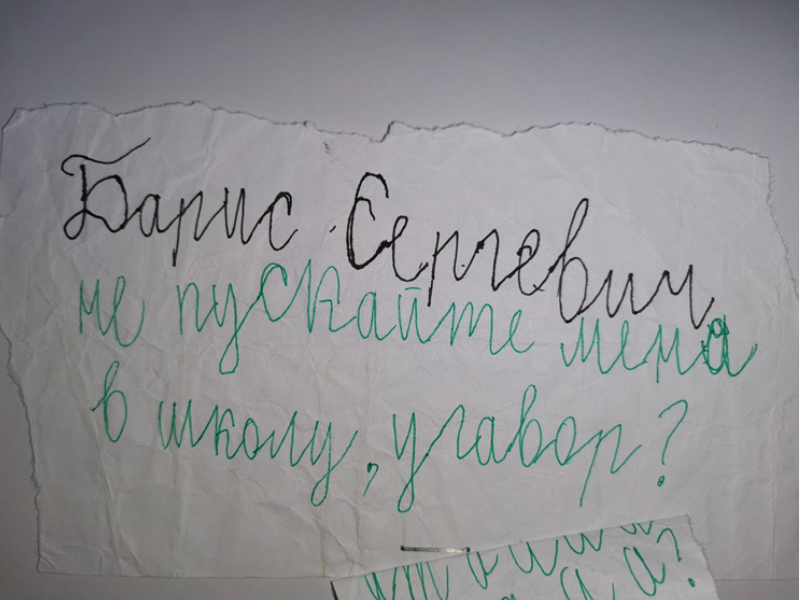 Барис Сергевич
не пускайте мена
в школу, угавор?